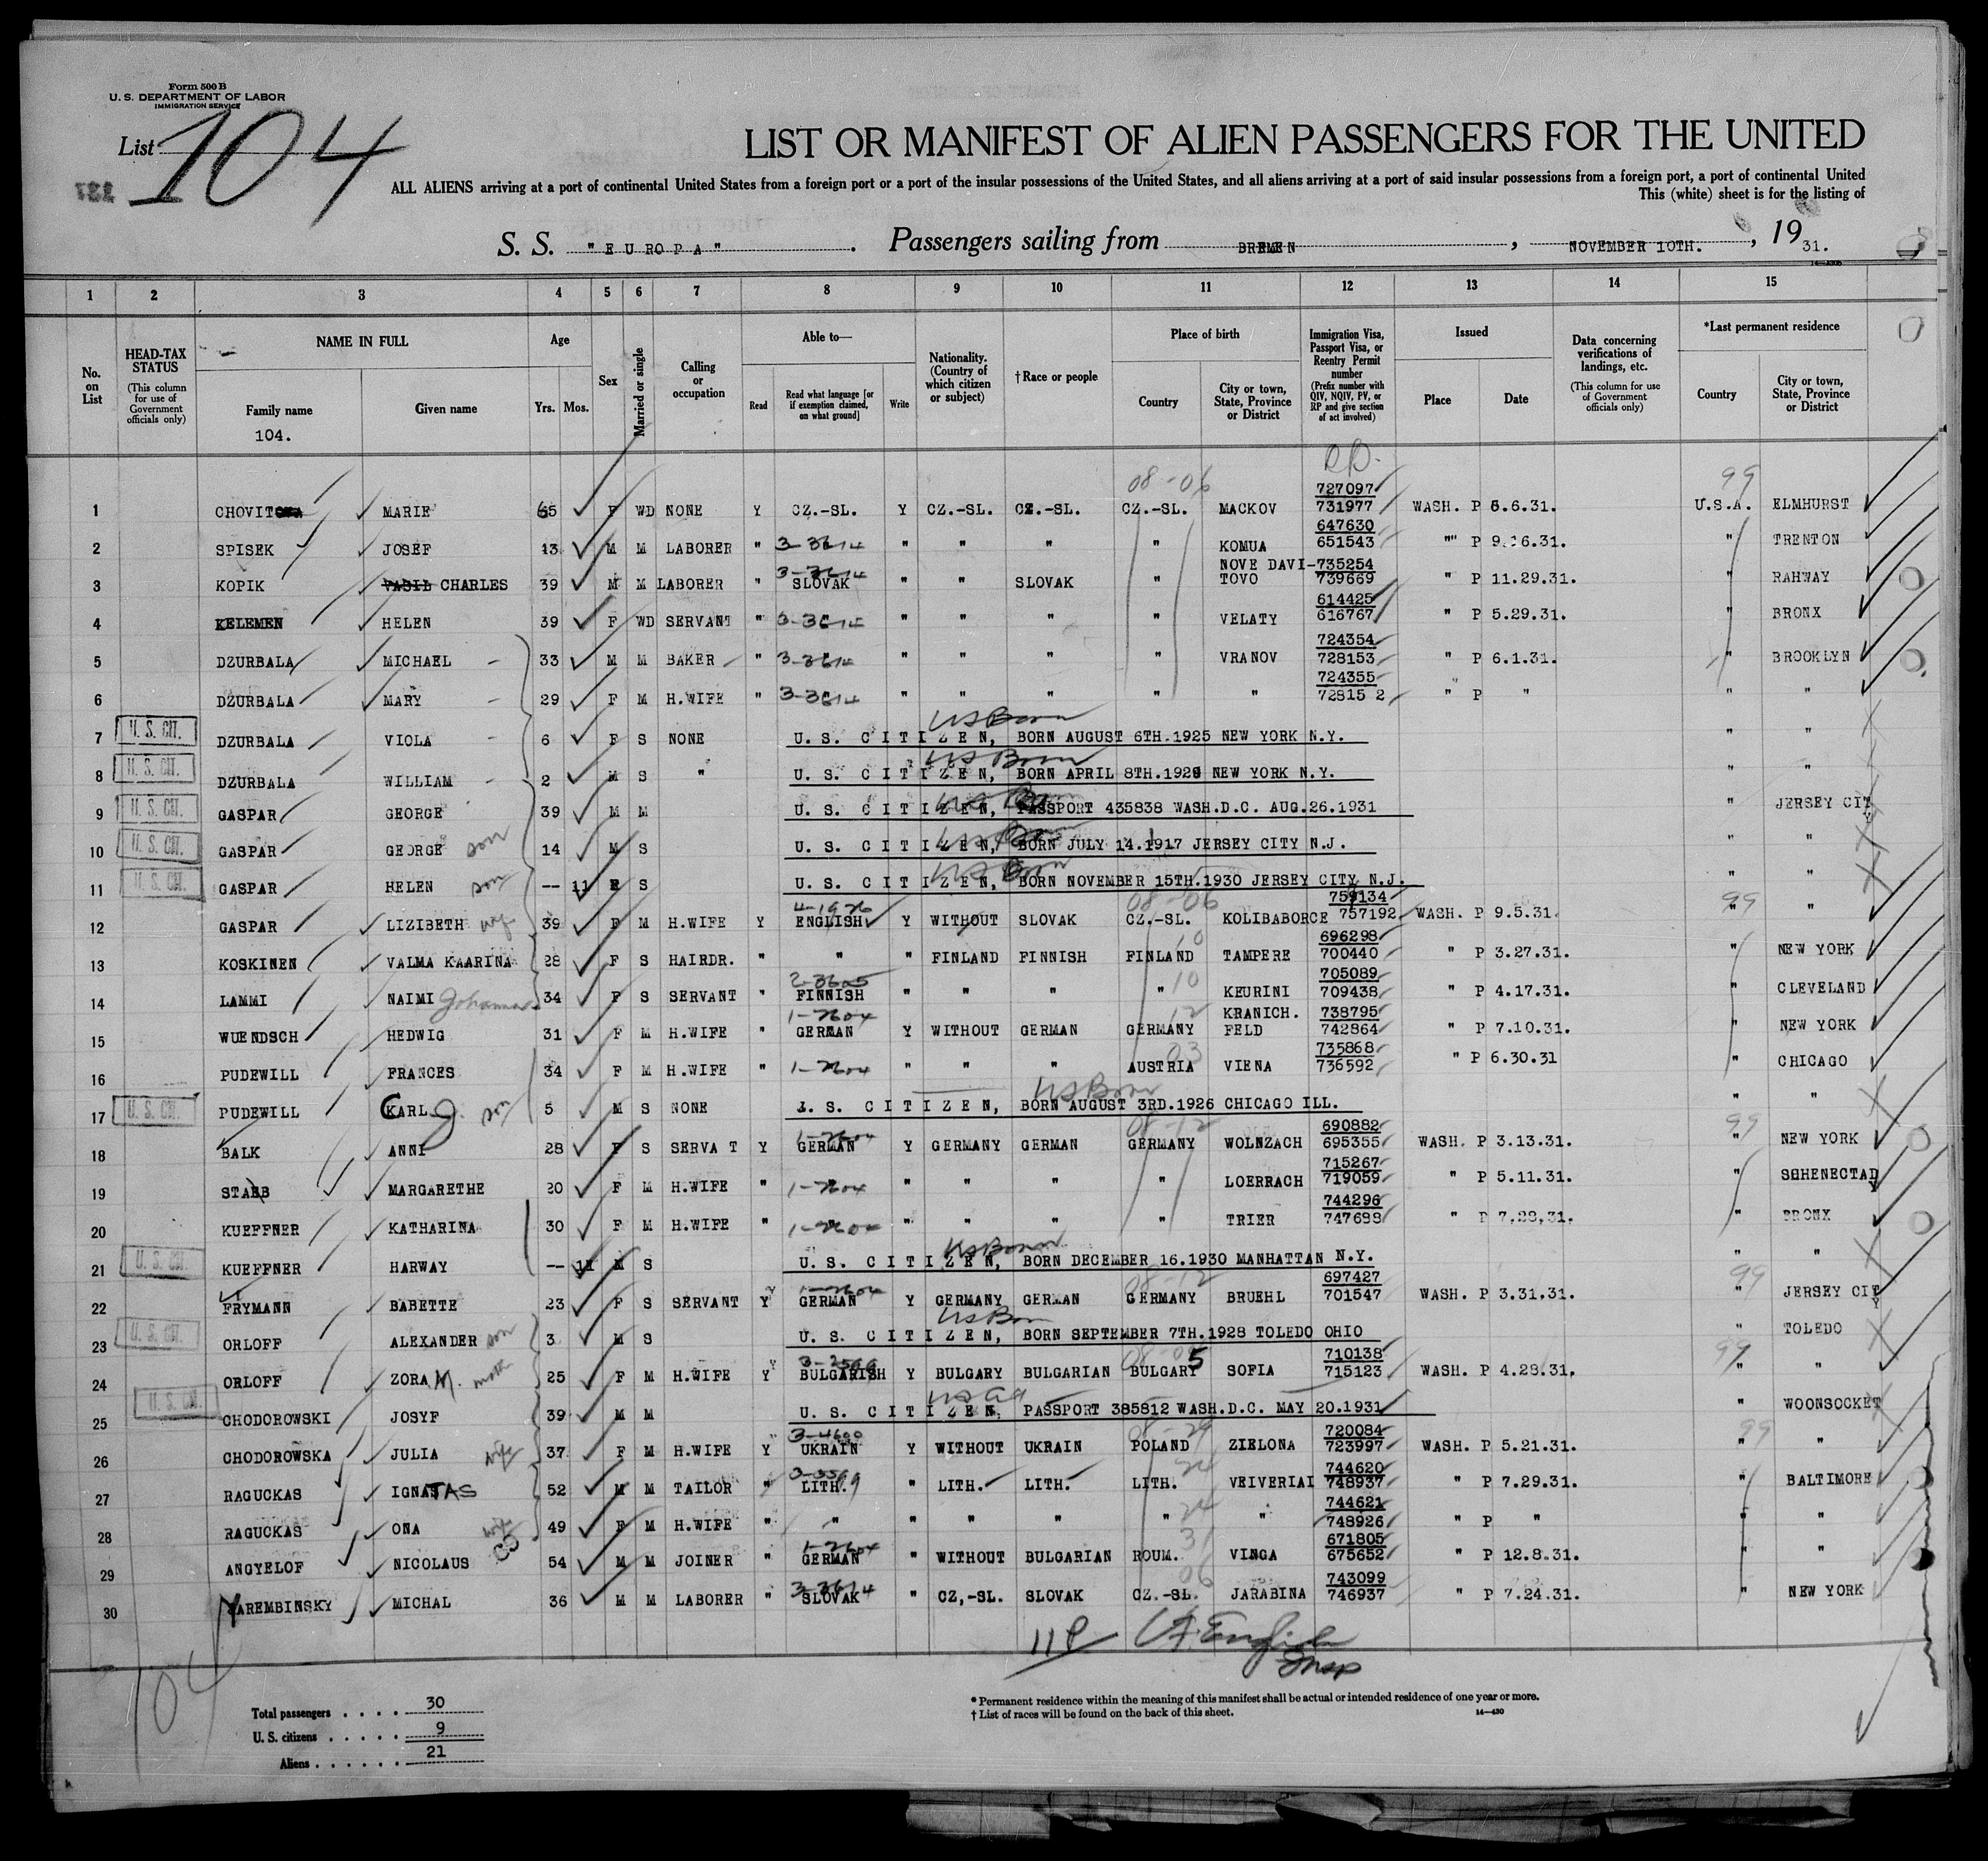 Form 500 B
U. S. DEPARTMENT OF LABOR
IMMIGRATION SERVICE
List 104
LIST OR MANIFEST OF ALIEN PASSENGERS FOR THE UNITED
ALL ALIENS arriving at a port of continental United States from a foreign port or a port of the insular possessions of the United States, and all aliens arriving at a port of said insular possessions from a foreign port, a port of continental United
This (white) sheet is for the listing of
S. S. "EUROPA" . Passengers sailing from BREMEN , NOVEMBER 10TH. , 19 31.
1 2 3 4 5 6 7 8 9 10 11 12 13 14 15
No. on List
HEAD-TAX STATUS (This column for use of Government officials only)
NAME IN FULL
Family name
104.
Given name
Age
Yrs. Mos.
Sex
Married or single
Calling or occupation
Able to—
Read
Read what language [or if exemption claimed, on what ground]
Write
Nationality. (Country of which citizen or subject)
† Race or people
Place of birth
Country
City or town, State, Province or District
Immigration Visa, Passport Visa, or Reentry Permit number (Prefix number with QIV, NQIV, PV, or RP and give section of act involved)
Issued
Place
Date
Data concerning verifications of landings, etc. (This column for use of Government officials only)
*Last permanent residence
Country
City or town, State, Province or District
08-06 99
1 MARIE 65 F WD NONE Y CZ.-SL. Y CZ.-SL. CZ.-SL. CZ.-SL. MACKOV 727097 731977 WASH. P 5.6.31. U.S.A. ELMHURST
2 SPISEK JOSEF M M LABORER " 3-3614 " " " " KOMUA 647630 651543 "" P " TRENTON
3 KOPIK VASIL CHARLES 39 M M LABORER " 3-3614 SLOVAK " " SLOVAK " NOVE DAVI-TOVO 735254 739669 " P 11.29.31. " RAHWAY
4 KELEMEN HELEN 39 F WD SERVANT " 3-3614 " " " " VELATY 614425 616767 " P 5.29.31. " BRONX
5 DZURBALA MICHAEL 33 M M BAKER " 3-3614 " " " " VRANOV 724354 728153 " P 6.1.31. " BROOKLYN
6 DZURBALA MARY 29 F M H.WIFE " 3-3614 " " " " " 724355 72815 2 " P " " "
7 U. S. CIT. DZURBALA VIOLA 6 F S NONE US Born U. S. CITIZEN, BORN AUGUST 6TH.1925 NEW YORK N.Y. " "
8 U. S. CIT. DZURBALA WILLIAM 2 M S " US Born U. S. CITIZEN, BORN APRIL 8TH.1929 NEW YORK N.Y. " "
9 U. S. CIT. GASPAR GEORGE 39 M M U. S. CITIZEN, PASSPORT 435838 WASH.D.C. AUG.26.1931 " JERSEY CITY
10 U. S. CIT. GASPAR GEORGE son 14 M S US Born U. S. CITIZEN, BORN JULY 14.1917 JERSEY CITY N.J. " "
11 U. S. CIT. GASPAR HELEN son -- 11 S US Born U. S. CITIZEN, BORN NOVEMBER 15TH.1930 JERSEY CITY N.J. " "
12 GASPAR LIZIBETH wife 39 F M H.WIFE Y ENGLISH Y WITHOUT SLOVAK CZ.-SL. 08-06 KOLIBABORCE 759134 757192 WASH. P 9.5.31. 99 " "
13 KOSKINEN VALMA KAARINA 28 F S HAIRDR. " " " FINLAND FINNISH FINLAND 10 TAMPERE 696298 700440 " P 3.27.31. " NEW YORK
14 LAMMI NAIMI Johanna 34 F S SERVANT " FINNISH " " " " 10 KEURINI 705089 709438 " P 4.17.31. " CLEVELAND
15 WUENDSCH HEDWIG 31 F M H.WIFE " 1-2604 GERMAN Y WITHOUT GERMAN GERMANY 12 KRANICH. FELD 738795 742864 " P 7.10.31. " NEW YORK
16 PUDEWILL FRANCES 34 F M H.WIFE " 1-2604 " " " AUSTRIA 03 VIENA 735868 736592 " P 6.30.31 " CHICAGO
17 U. S. CIT. PUDEWILL CARL J. son 5 M S NONE US Born U. S. CITIZEN, BORN AUGUST 3RD.1926 CHICAGO ILL. " "
18 BALK ANNI 28 F S SERVA T Y 1-2604 GERMAN Y GERMANY GERMAN GERMANY 08-12 WOLNZACH 690882 695355 WASH. P 3.13.31. 99 " NEW YORK
19 MARGARETHE 20 F M H.WIFE " 1-2604 " " " " LOERRACH 715267 719059 " P 5.11.31. " SCHENECTADY
20 KUEFFNER KATHARINA 30 F M H.WIFE " 1-2604 " " " " TRIER 744296 747688 " P 7.28.31. " BRONX
21 U. S. CIT. KUEFFNER HARWAY -- 11 M S US Born U. S. CITIZEN, BORN DECEMBER 16.1930 MANHATTAN N.Y. " "
22 FRYMANN BABETTE 23 F S SERVANT Y 1-2604 GERMAN Y GERMANY GERMAN GERMANY 08-12 BRUEHL 697427 701547 WASH. P 3.31.31. 99 " JERSEY CITY
23 U. S. CIT. ORLOFF ALEXANDER son 3 M S US Born U. S. CITIZEN, BORN SEPTEMBER 7TH.1928 TOLEDO OHIO " TOLEDO
24 ORLOFF ZORA M. moth 25 F M H.WIFE Y BULGARISH Y BULGARY BULGARIAN BULGARY SOFIA 710138 715123 WASH. P 4.28.31. 99 " "
25 U. S. CIT. CHODOROWSKI JOSYF 39 M M U. S. CITIZEN, PASSPORT 385812 WASH.D.C. MAY 20.1931 " WOONSOCKET
26 CHODOROWSKA JULIA wife 37 F M H.WIFE Y 3-4600 UKRAIN Y WITHOUT UKRAIN POLAND ZIELONA 720084 723997 WASH. P 5.21.31. 99 " "
27 RAGUCKAS IGNATAS 52 M M TAILOR " LITH. " LITH. LITH. LITH. 24 VEIVERIAI 744620 748937 " P 7.29.31. " BALTIMORE
28 RAGUCKAS ONA wife 49 F M H.WIFE " " " " " " 24 " 744621 748926 " P " " "
29 ANGYELOF NICOLAUS 54 M M JOINER " 1-2604 GERMAN " WITHOUT BULGARIAN ROUM. 31 VINGA 671805 675652 " P 12.8.31. " "
30 MICHAL 36 M M LABORER " 3-3614 SLOVAK " CZ,-SL. SLOVAK CZ.-SL. 06 JARABINA 743099 746937 " P 7.24.31. " NEW YORK
English
Insp
104
Total passengers . . . . 30
U. S. citizens . . . . . 9
Aliens . . . . . . 21
* Permanent residence within the meaning of this manifest shall be actual or intended residence of one year or more.
† List of races will be found on the back of this sheet.
14—430